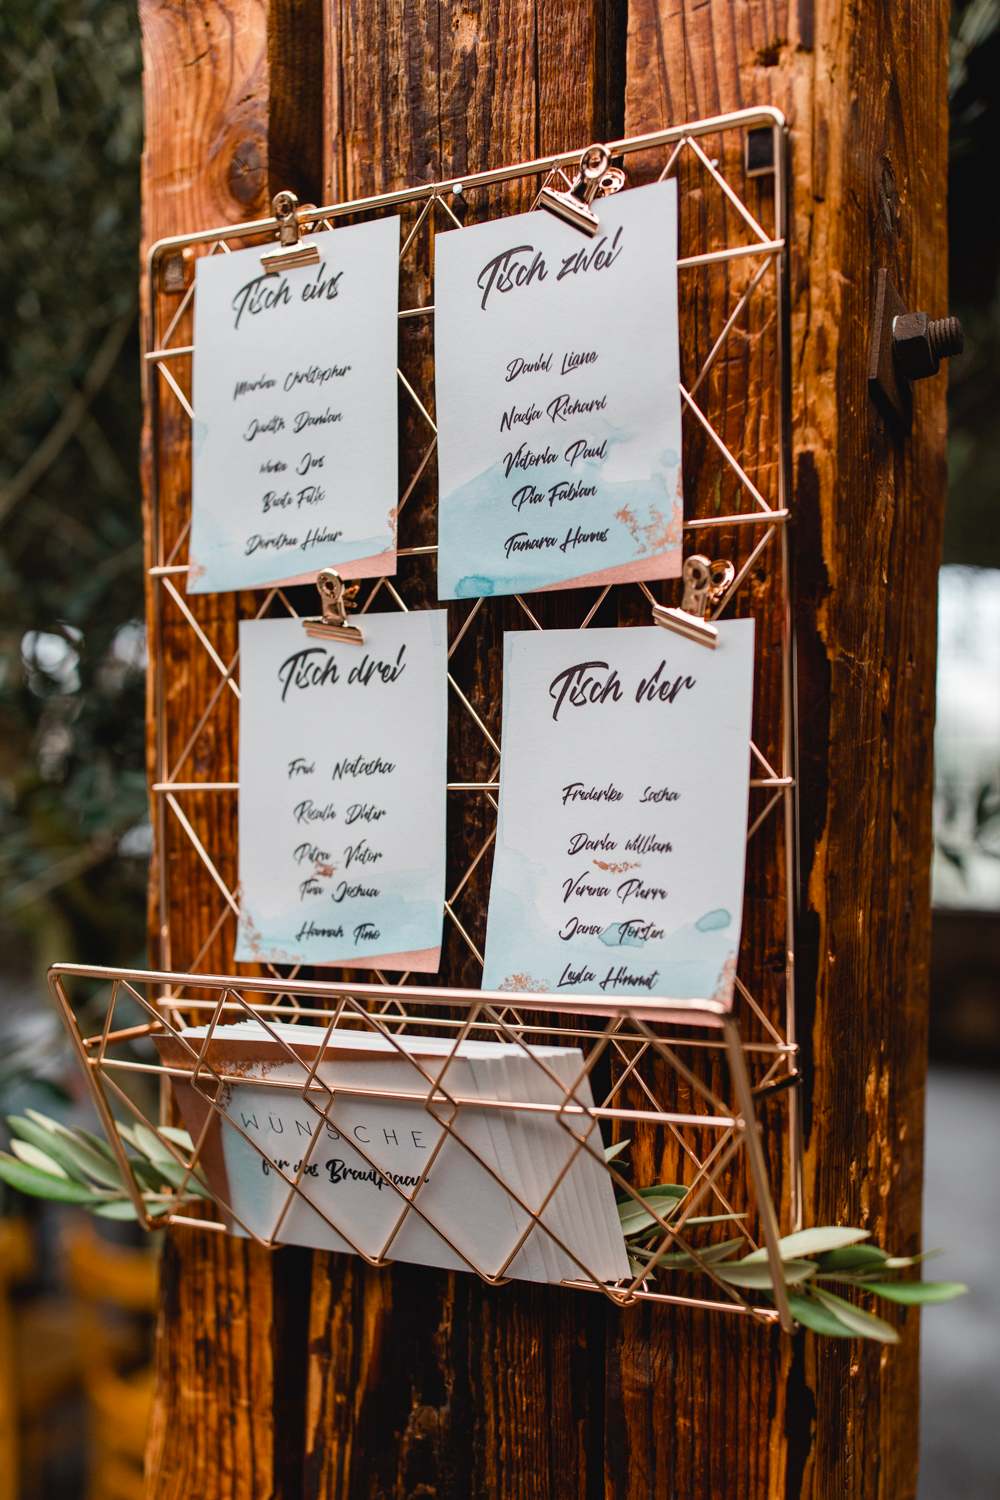 Tisch eins
Marina Christopher
Judith Damian
Jens
Beate Felix
Dorothee Heiner
Tisch zwei
Daniel Liane
Nadja Richard
Victoria Paul
Pia Fabian
Tamara Hannes
Tisch drei
Natascha
Rosalie Dieter
Petra Victor
Tina Joshua
Hannah Timo
Tisch vier
Frederike Sasha
Daria William
Verena Pierre
Jana Torsten
Leyla Himmet
WÜNSCHE
für das Brautpaar